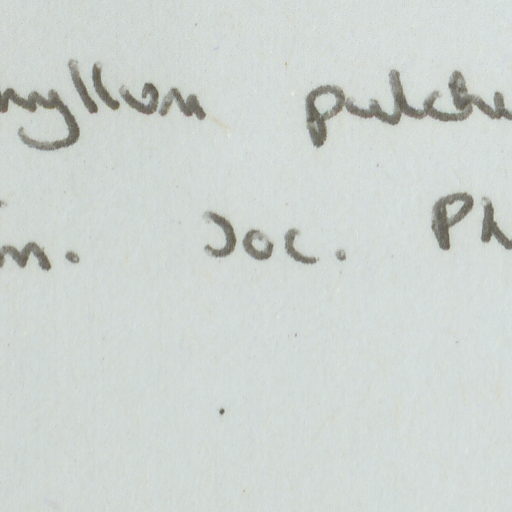 hyllum pulche
m. Joc. Ph